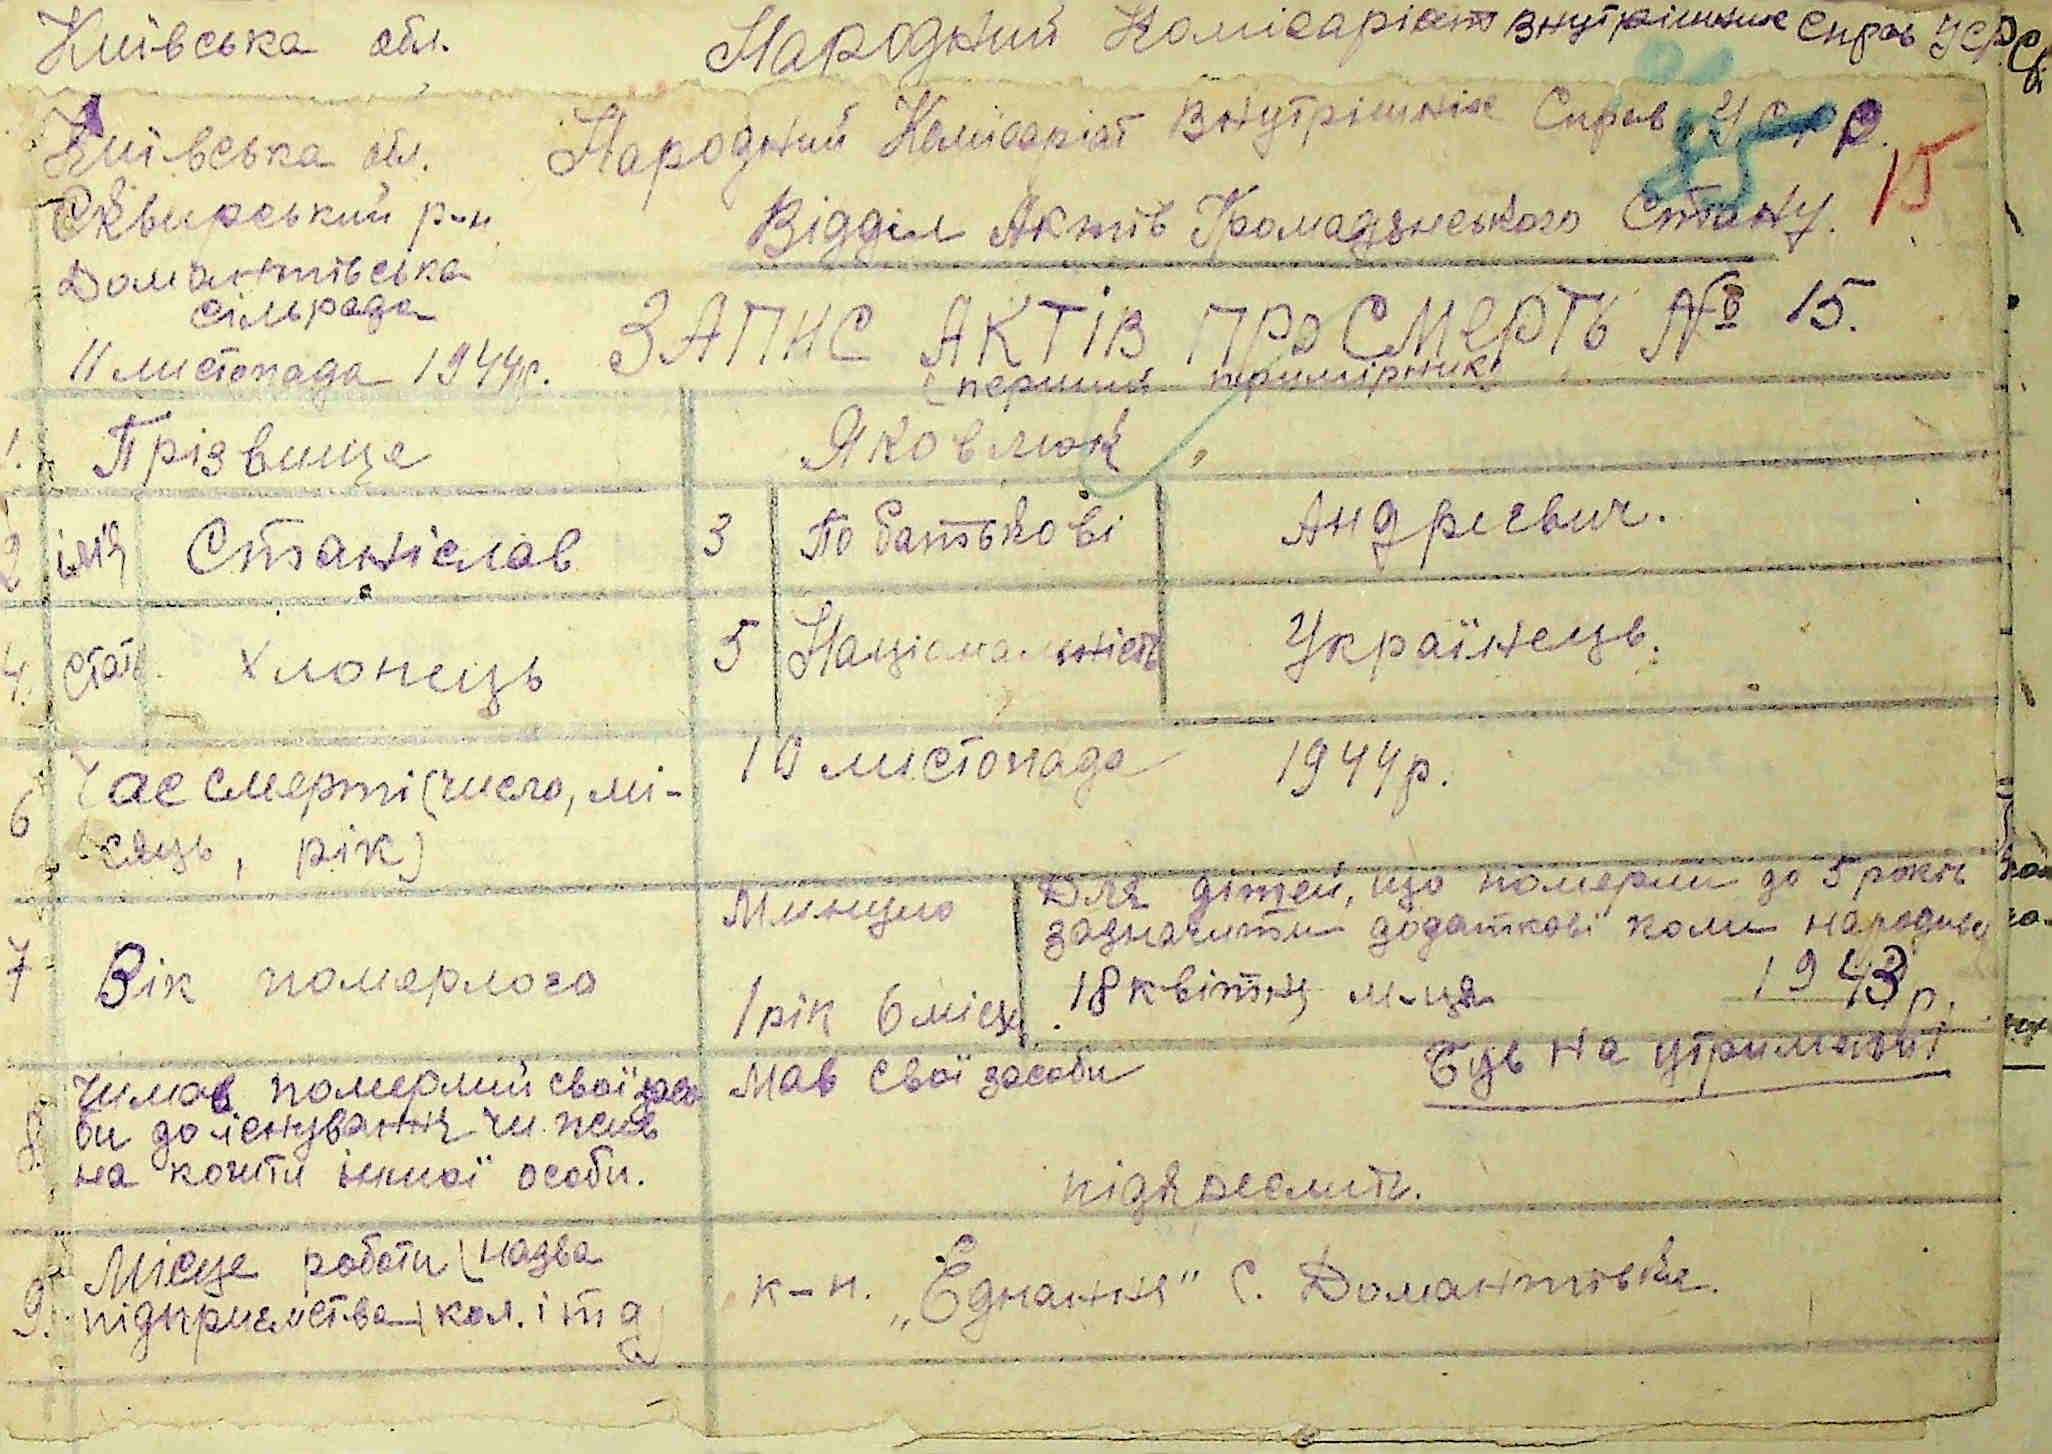 Київська обл. Народний Комісаріат Внутрішніх Справ УСРР
Київська обл. Народний Комісаріат Внутрішніх Справ УСРР.
Сквирський р-н Відділ Актів Громадянського Стану. 15
Домантівська
сільрада
ЗАПИС АКТІВ ПРО СМЕРТЬ № 15.
11 листопада 1944р.
(перший примірник)
1. Прізвище Яковлюк
2 імя Станіслав 3 По батькові Андрієвич.
4. стать Хлопець 5 Національність Українець.
6 Час смерті (число, мі-
сяць, рік) 10 листопада 1944р.
7 Вік померлого Минуло 1 рік 6 місяц.
Для дітей, що померли до 5 років
зазначити додаткові коли народив
18 квітня м-ця 1943р.
8. Чи мав померлий свої засо
би до існування чи жив
на кошти іншої особи.
Мав свої засоби Був на утриманні
підкреслить.
9. Місце роботи (назва
підприємства, кол. і т д)
к-п. „Єднання" с. Домантівка.